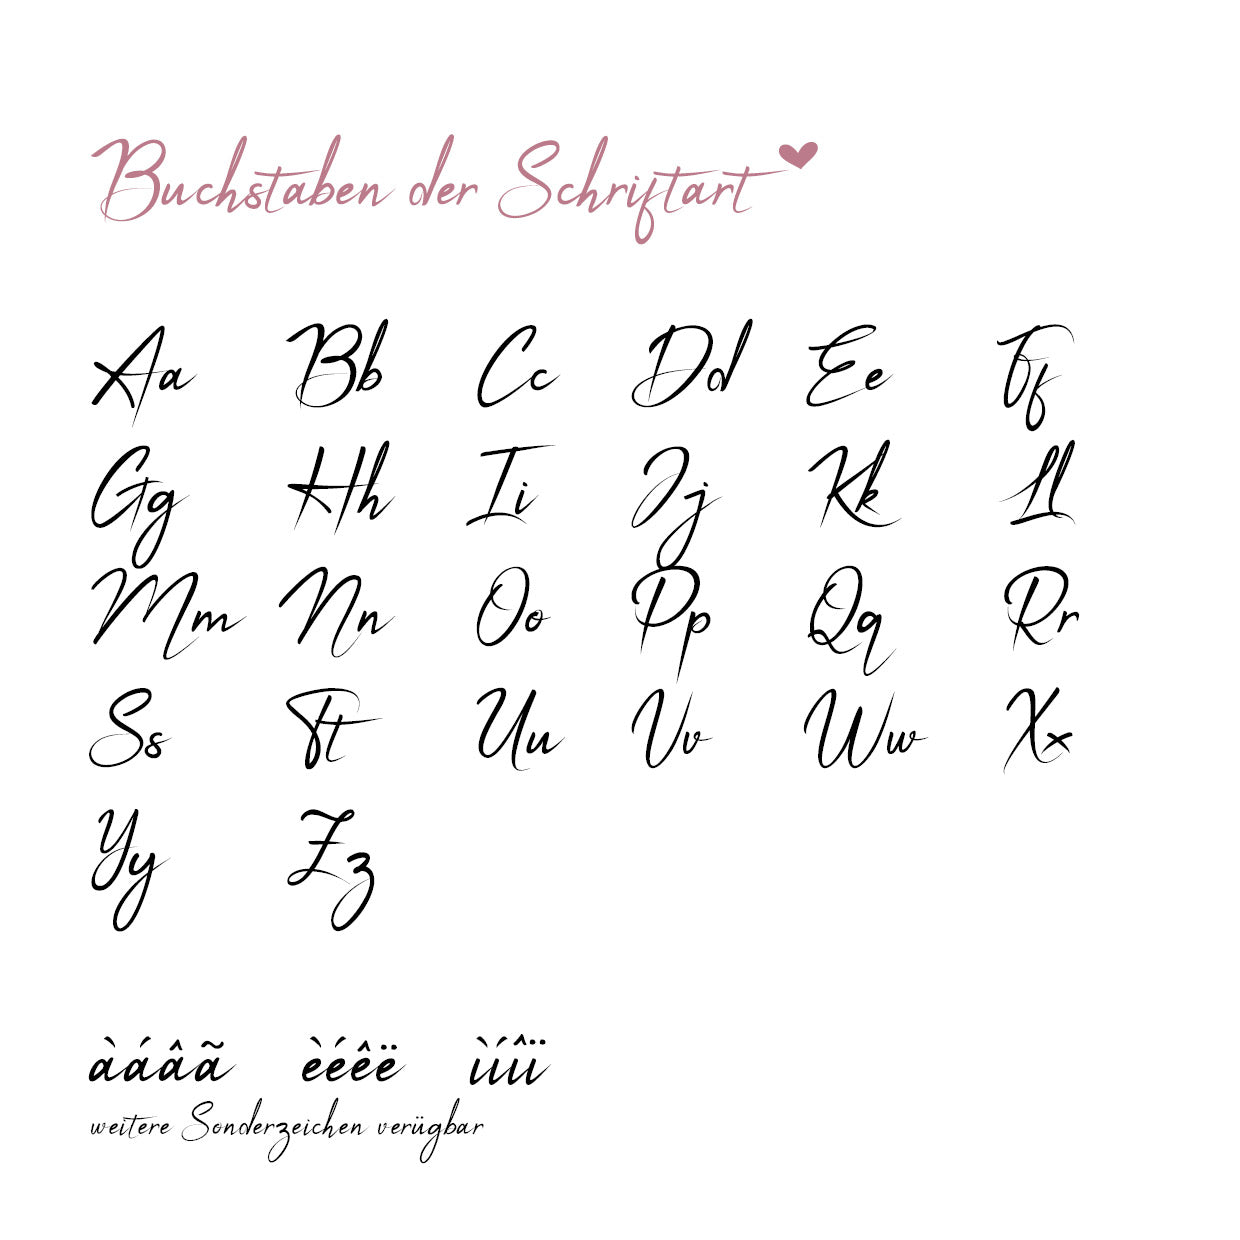 Buchstaben der Schriftart
Aa Bb Cc Dd Ee Ff
Gg Hh Ii Jj Kk Ll
Mm Nn Oo Pp Qq Rr
Ss Tt Uu Vv Ww Xx
Yy Zz
àáâã èéêë ìíîï
weitere Sonderzeichen verügbar